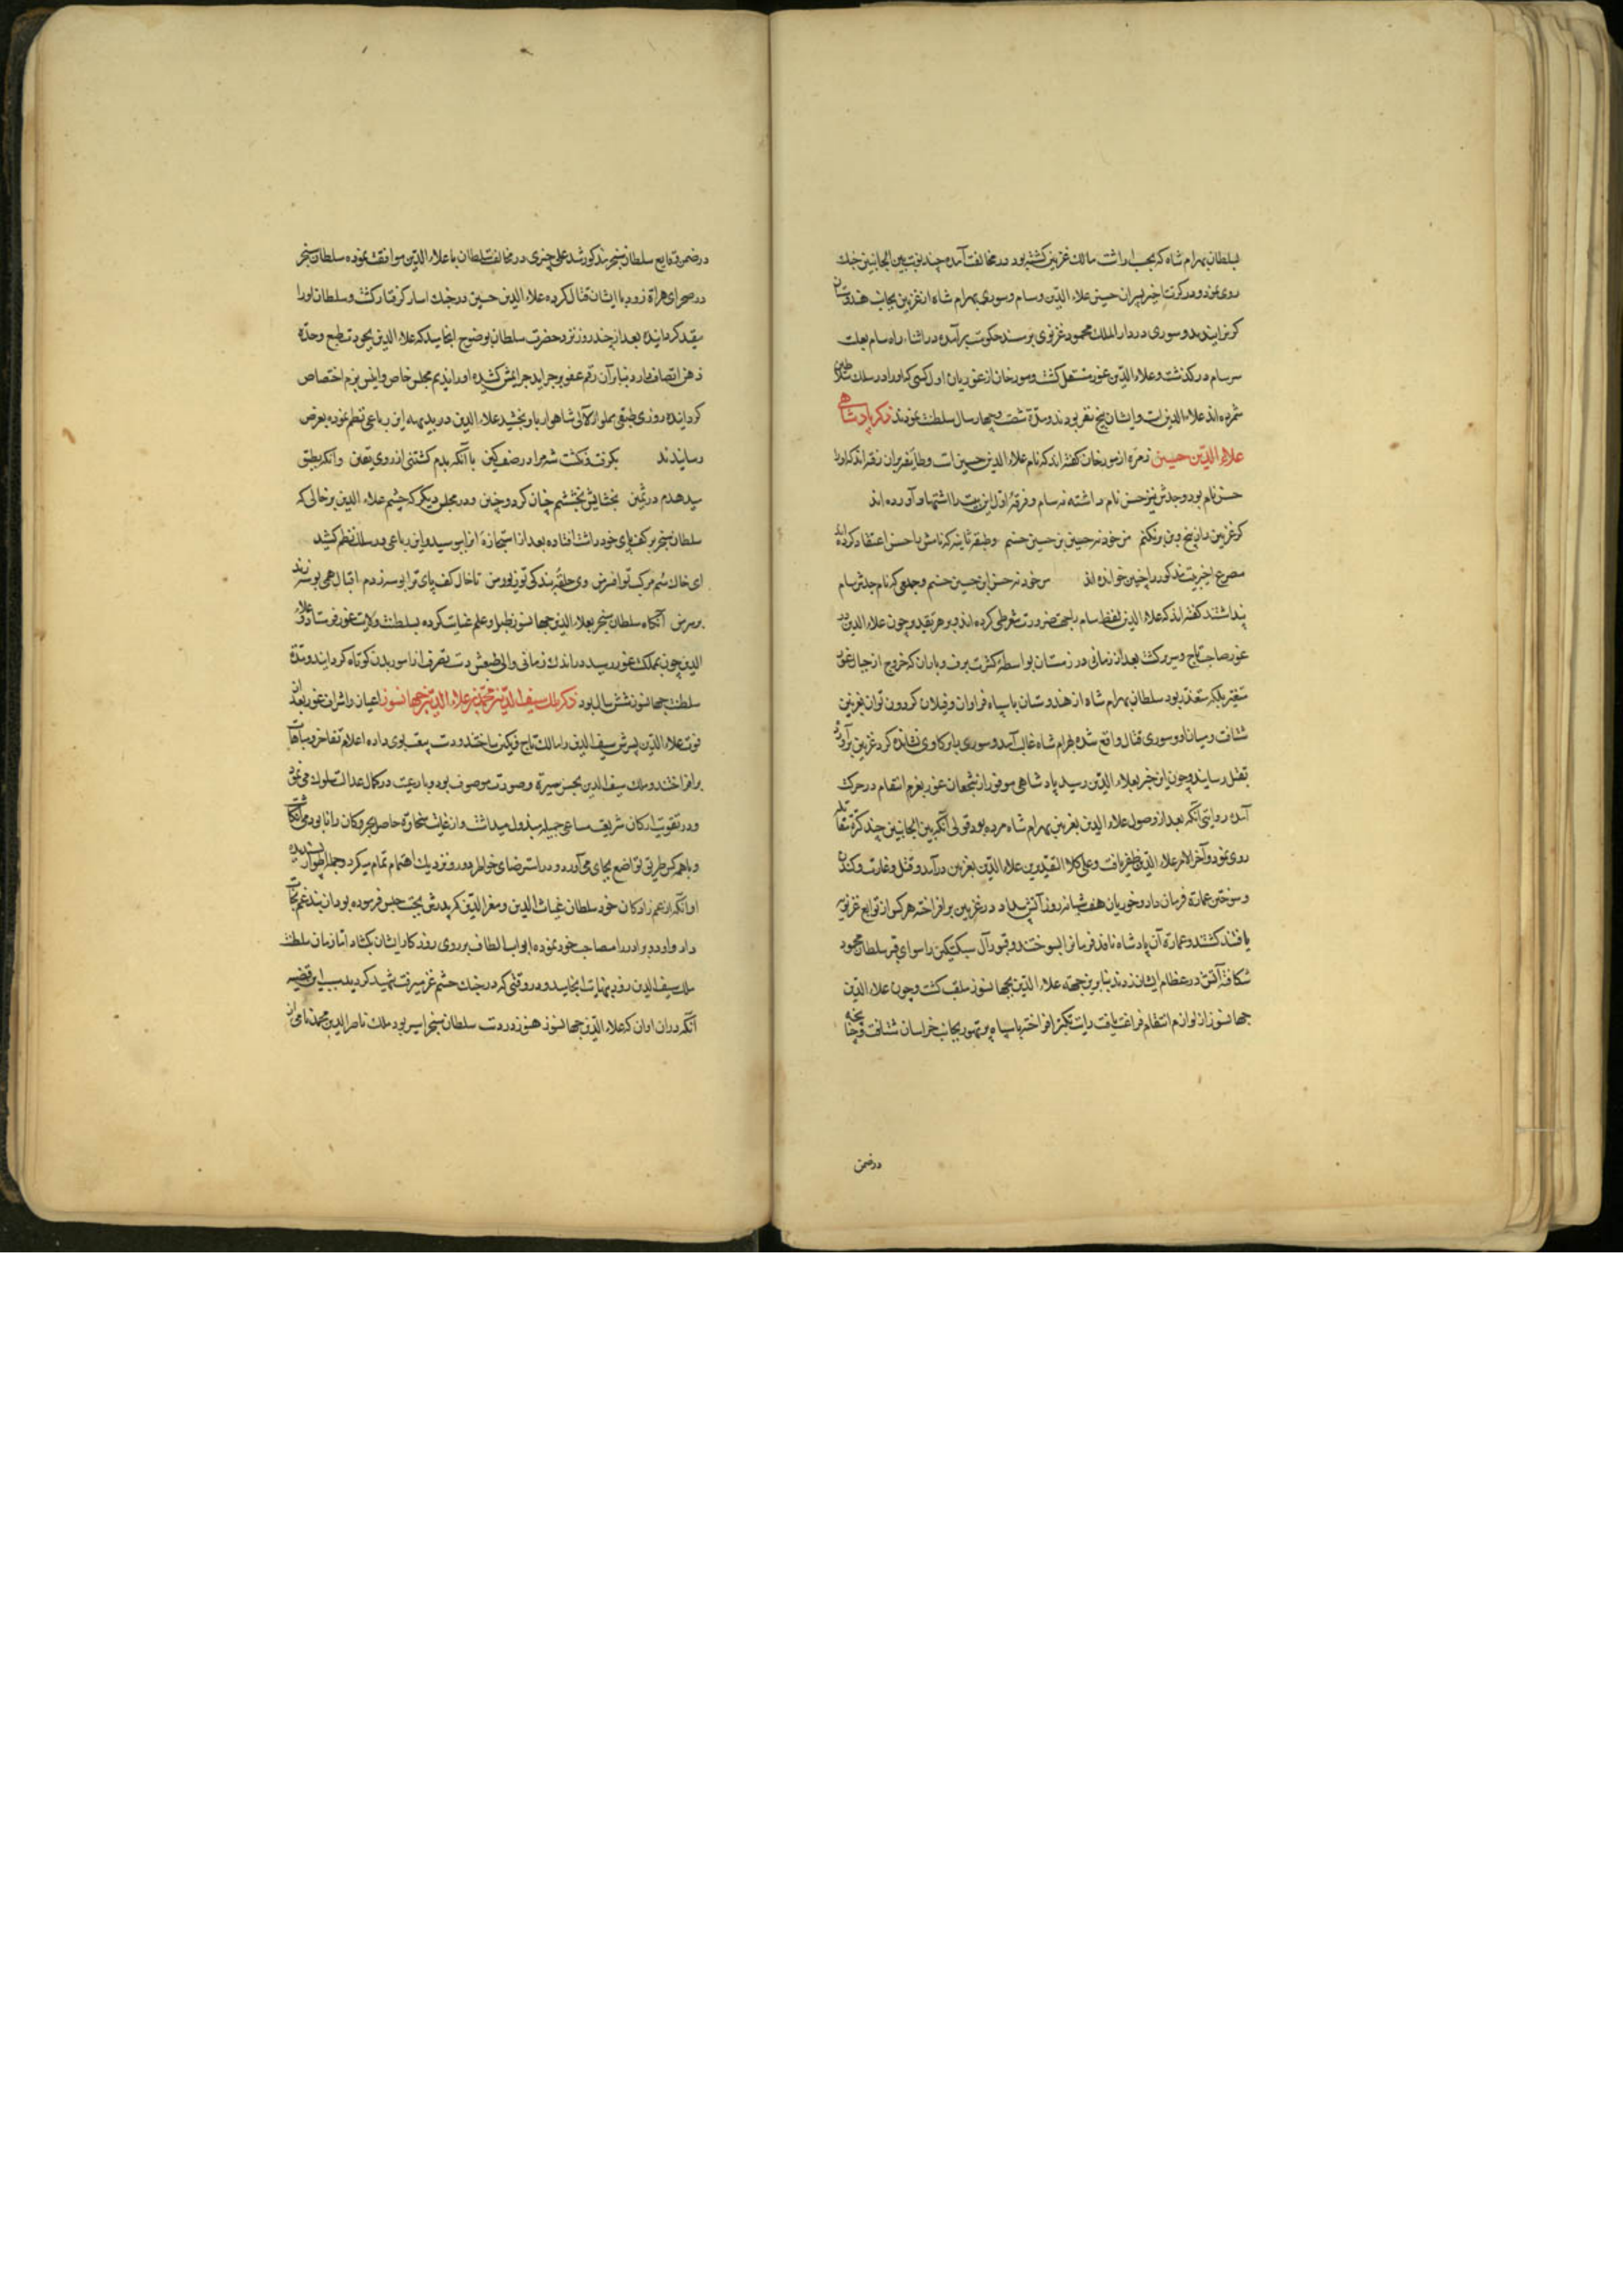 بسلطان بهرام شاه که بحسب ارث مالک غزنین کشته بود در مخالفت آمده چند نوبت بین الجانبین جنک
روی نمود و در کرت اخیر پسران حسین علاء الدین و سام و سوری بهرام شاه را از غزنین بجانب هندوستان
کریزانیدند و سوری در دار الملک محمود غزنوی بر مسند حکومت برآمده در اثناء راه سام بعلت
سرسام درکذشت و علاء الدین بغور مستقل کشت و مورخان از غوریان اول کسی که او را در سلک سلاطین
شمرده اند علاء الدین است و ایشان پنج نفر بودند و مدة شصت و چهار سال سلطنت نمودند ذکر پادشاهی
علاء الدین حسین زمره از مورخان کفته اند که نام علاء الدین حسین است و طایفه بران رفته اند که او را
حسن نام بود و جدش نیز حسن نام داشته نه سام و فرقهٔ اول این بیت را استشهاد آورده اند
کر غزنین را از بیخ و بن برنکنم من خود نه حسین بن حسین حسنم و طبقهٔ ثانیه که نامش را حسن اعتقاد کرده اند
مصرع اخیر بیت مذکور را چنین خوانده اند من خود نه حسن ابن حسین حسنم و جمعی که نام جدش سام
پنداشتند کفته اند که علاء الدین لفظ سام را بجهت ضرورت شعر طی کرده اند و بر هر تقدیر چون علاء الدین در
غور صاحب تاج و سریر کشت بعد از زمانی در زمستان بواسطهٔ کثرت برف و باران که خروج از جبال غور
متعسر بلکه متعذر بود سلطان بهرام شاه از هندوستان با سپاه فراوان و فیلان کردون توان بغزنین
شتافت و میان او و سوری قتال واقع شده بهرام شاه غالب آمد و سوری را بر کاوی نشانده کرد غزنین برآورده
بقتل رسانید و چون این خبر بعلاء الدین رسید پادشاهی موفور از شجعان غور بعزم انتقام در حرکت
آمده روایتی آنکه بعد از وصول علاء الدین بغزنین بهرام شاه مرده بود و قولی آنکه بین الجانبین چند کرة مقاتله
روی نمود و آخر الامر علاء الدین ظفر یافت و علی کلا التقدیرین علاء الدین بغزنین درآمد و قتل و غارت و کندن
و سوختن عمارة فرمان داد و غوریان هفت شبانه روز آتش بیداد در غزنین برافراخته هر کس از توابع غزنویه
یافتند کشتند و عمارة آن پادشاه نافذ فرمانرا بسوختند و قبور آل سبکتیکین را سوای قبر سلطان محمود
شکافته آتش در عظام ایشان زدند بنا برین جهته علاء الدین بجهانسوز ملقب کشت و چون علاء الدین
جهانسوز از لوازم انتقام فراغت یافت رایت تکبر افراخته با سپاه پرتهور بجانب خراسان شتافت و چنانچه
در ضمن
در ضمن وقایع سلطان سنجر مذکور شد علی چتری در مخالفت سلطان با علاء الدین موافقت نموده سلطان سنجر
در صحرای هراة زود با ایشان قتال کرده علاء الدین حسین در جنک اسار کرفتار کشت و سلطان او را
مقید کردانیده بعد از چند روز نزد حضرت سلطان بوضوح انجامید که علاء الدین بجودت طبع و حدة
ذهن اتصاف دارد بنابر آن رقم عفو بر جراید جرایمش کشیده او را ندیم مجلس خاص و انیس بزم اختصاص
کردانیده روزی طبقی مملو از لآلی شاهوار باو بخشید علاء الدین در بدیهه این رباعی نظم نموده بعرض
رسانیدند بکرفت و نکشت شه مرا در صف کین با آنکه بدم کشتنی از روی یقین وانکه بطبق
میدهدم در ثمین بخشایش و بخششم چنان کرد و چنین و در مجلس دیکر که چشم علاء الدین بر خالی که
سلطان سنجر بر کف پای خود داشت افتاده بعد از استجازة انرا بوسید و این رباعی در سلک نظم کشید
ای خاک سم مرکب تو افسر من وی حلقهٔ بندکی تو زیور من تا خال کف پای ترا بوسه زدم اقبال همی بوسه زند
بر سر من آنکاه سلطان سنجر بعلاء الدین جهانسوز طبل و علم عنایت کرده بسلطنت ولایت غور فرستاد و علاء
الدین چون بمملکت غور رسید در اندک زمانی والی طبیعتش دست تصرف از امور بدن کوتاه کردانید و مدة
سلطنت جهانسوز شش سال بود ذکر ملک سیف الدین محمد بن علاء الدین جهانسوز اعیان و اشراف غور بعد از
فوت علاء الدین پسرش سیف الدین را مالک تاج و نکین ساختند و دست بیعت بوی داده اعلام تفاخر و مباهات
برافراختند و ملک سیف الدین بحسن سیرة و صورت موصوف بود و با رعیت در کمال عدالت سلوک می نمود
و در تقویت ارکان شریعت مساعی جمیله مبذول میداشت و از غایت سخاوة حاصل بحر و کان را نابود می انکاشت
و با همه کس طریق تواضع بجای می آورد و در استرضای خواطر دور و نزدیک اهتمام تمام میکرد و جمله اطوار پسندیده
او آنکه از عم زادکان خود سلطان غیاث الدین و معز الدین که پدرش بجهت حبس فرموده بود از بند غم نجات
داد و او در برادر را مصاحب خود نموده ابواب الطاف بر روی روزکار ایشان بکشاد اما زمان سلطنت
ملک سیف الدین زود بنهایت انجامید و در وقتی که در جنک حشم غز میرفت شهید کردید سبب این قضیه
آنکه در ان اوان که علاء الدین جهانسوز هنوز در دست سلطان سنجر اسیر بود ملک ناصر الدین محمد نامی از